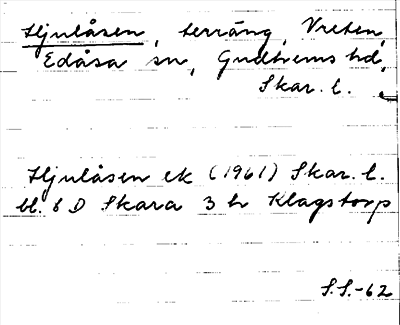 Hjulåsen, terräng, Vreten,
Edåsa sn, Gudhems hd,
Skar. l.
Hjulåsen ek (1961) Skar. l.
bl. 8 D Skara 3 h Klagstorp
S.S.-62